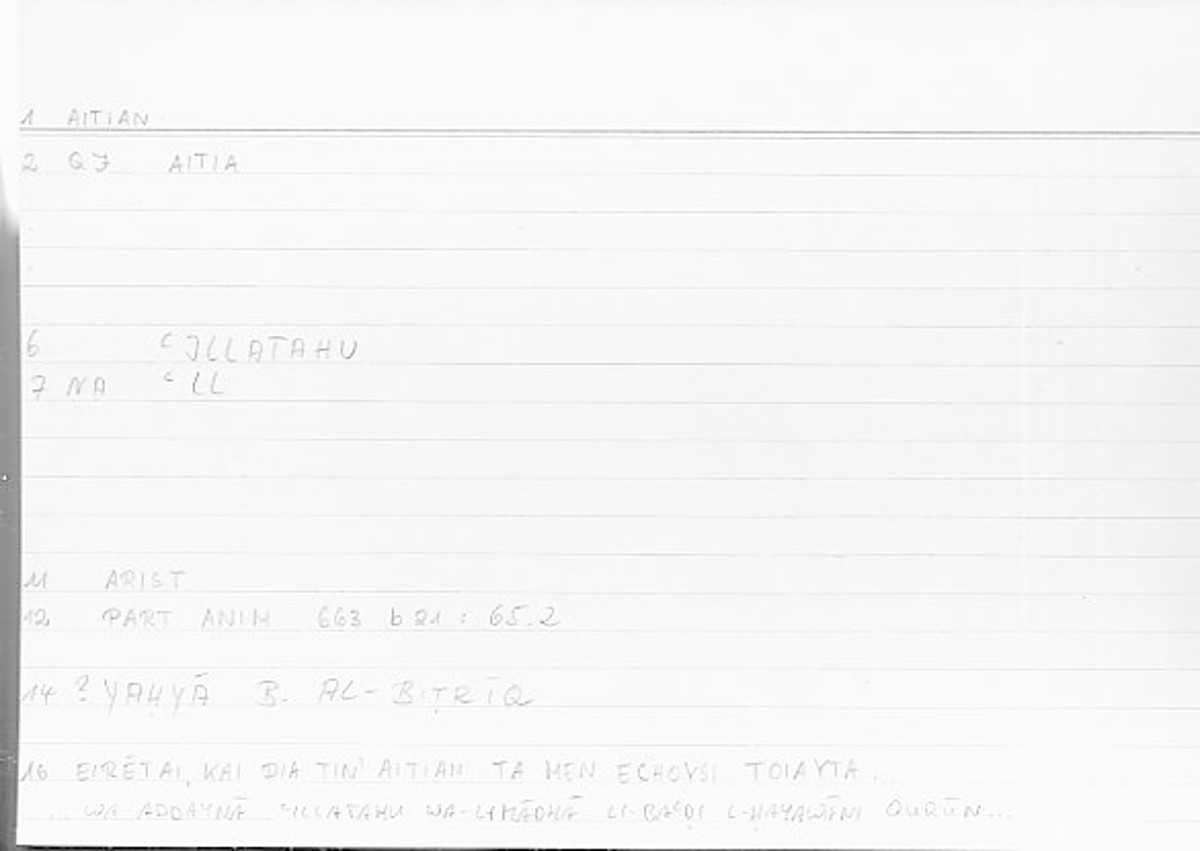 1 AITIAN
2 QJ AITIA
6 ʿILLATAHU
7 NA ʿLL
11 ARIST
12 PART ANIM 663 b 21 : 65.2
14 ? YAḤYĀ B. AL-BIṬRĪQ
16 EIRĒTAI, KAI DIA TIN' AITIAN TA MEN ECHOVSI TOIAVTA...
... WA-ADDAYNĀ ʿILLATAHU WA-LIMĀDHĀ LI-BAʿḌI L-ḤAYAWĀNI QURŪN...